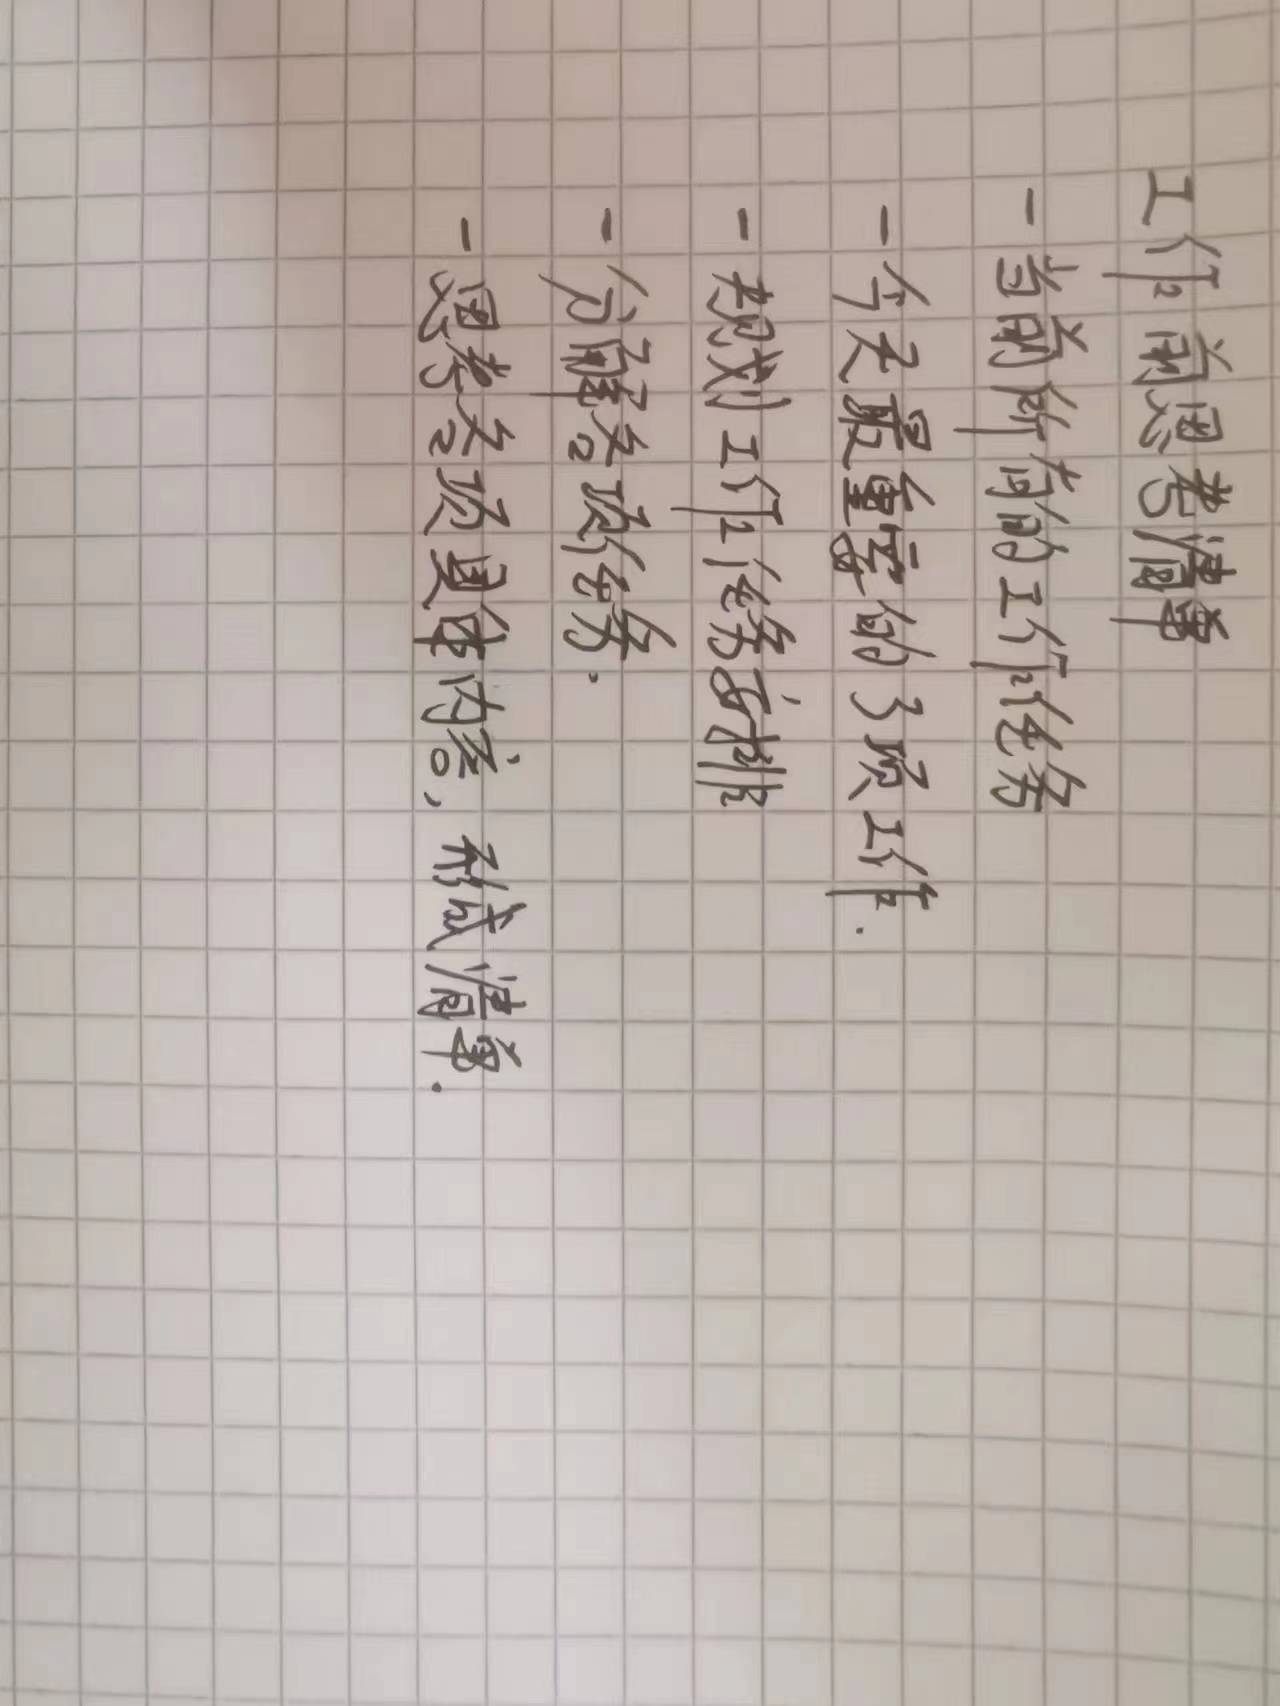 工作前思考清单
- 当前所有的工作任务
- 今天最重要的3项工作.
- 规划工作任务安排
- 分解各项任务.
- 思考各项具体内容, 形成清单.